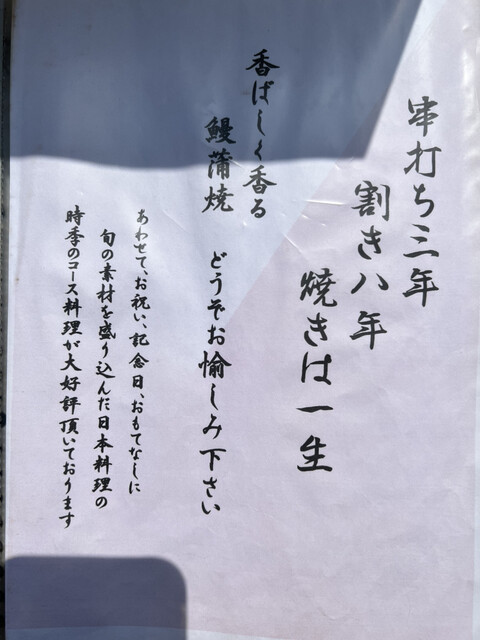 串打ち三年
割き八年
焼きは一生
香ばしく香る
鰻蒲焼 どうぞお愉しみ下さい
あわせて、お祝い、記念日、おもてなしに
旬の素材を盛り込んだ日本料理の
時季のコース料理が大好評頂いております